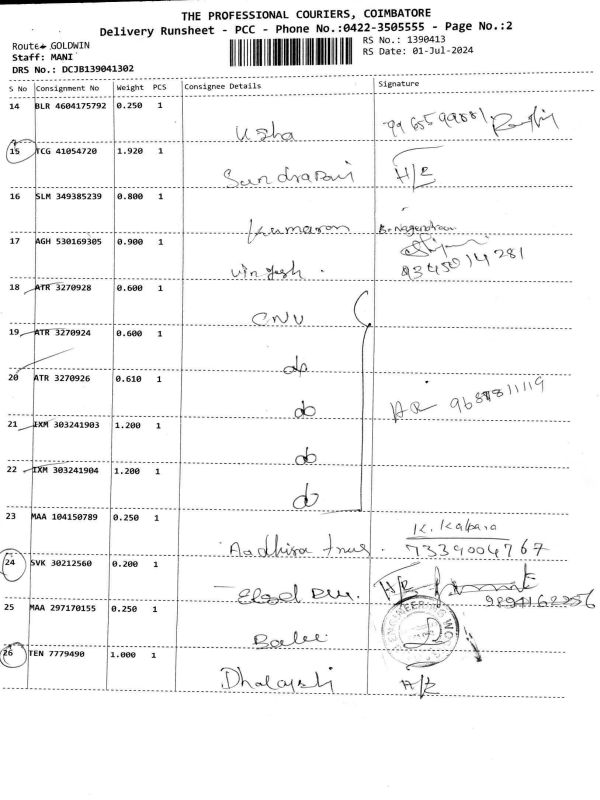 THE PROFESSIONAL COURIERS, COIMBATORE
Delivery Runsheet - PCC - Phone No.:0422-3505555 - Page No.:2
Route: GOLDWIN
RS No.: 1390413
Staff: MANI
RS Date: 01-Jul-2024
DRS No.: DCJB139041302
S No Consignment No Weight PCS Consignee Details Signature
14 BLR 4604175792 0.250 1
Usha
15 TCG 41054720 1.920 1
H/R
16 SLM 349385239 0.800 1
Kumaran
17 AGH 530169305 0.900 1
9345014281
18 ATR 3270928 0.600 1
CNU
19 ATR 3270924 0.600 1
do
20 ATR 3270926 0.610 1
do
21 IXM 303241903 1.200 1
do
22 IXM 303241904 1.200 1
do
23 MAA 104150789 0.250 1
7339004767
24 SVK 30212560 0.200 1
H/R
25 MAA 297170155 0.250 1
26 TEN 7779490 1.000 1